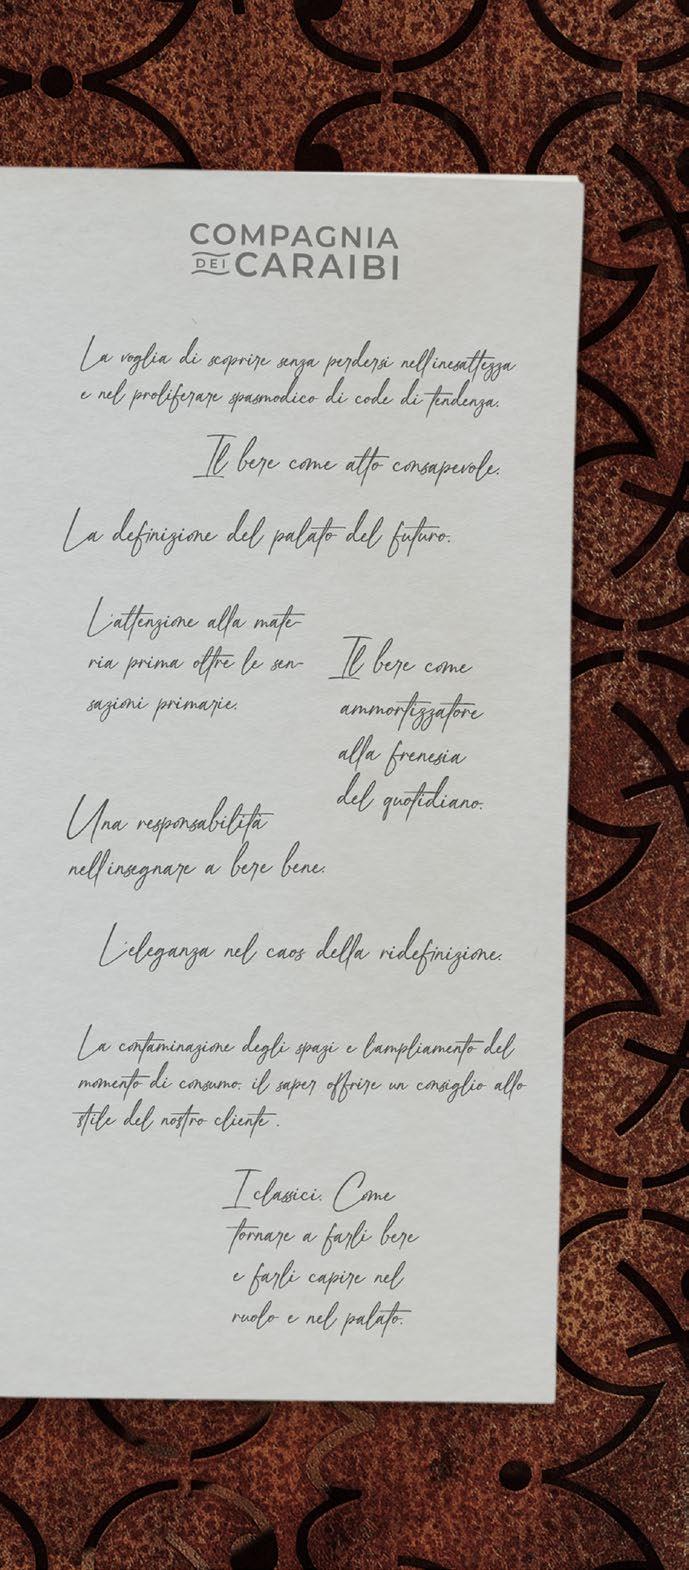 COMPAGNIA
DEI CARAIBI
La voglia di scoprire senza perdersi nell'inesattezza
e nel proliferare spasmodico di code di tendenza.
Il bere come atto consapevole.
La definizione del palato del futuro.
L'attenzione alla mate-
ria prima oltre le sen-
sazioni primarie.
Il bere come
ammortizzatore
alla frenesia
del quotidiano.
Una responsabilità
nell'insegnare a bere bene.
L'eleganza nel caos della ridefinizione.
La contaminazione degli spazi e l'ampliamento del
momento di consumo: il saper offrire un consiglio allo
stile del nostro cliente .
I classici. Come
tornare a farli bere
e farli capire nel
ruolo e nel palato.